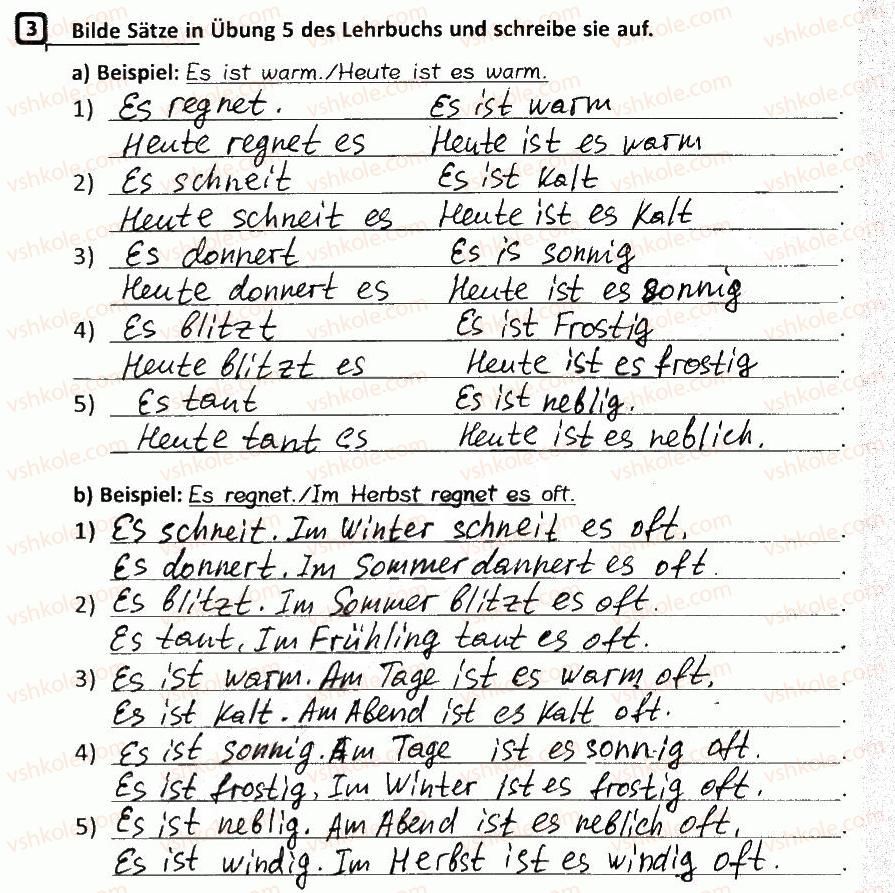 3 Bilde Sätze in Übung 5 des Lehrbuchs und schreibe sie auf.
a) Beispiel: Es ist warm./Heute ist es warm.
1) Es regnet. Es ist warm.
Heute regnet es Heute ist es warm.
2) Es schneit Es ist Kalt.
Heute schneit es Heute ist es Kalt.
3) Es donnert Es is sonnig.
Heute donnert es Heute ist es sonnig.
4) Es blitzt Es ist Frostig.
Heute blitzt es Heute ist es frostig.
5) Es tant Es ist neblig.
Heute tant es Heute ist es neblich.
b) Beispiel: Es regnet./Im Herbst regnet es oft.
1) Es schneit. Im Winter schneit es oft.
Es donnert. Im Sommer dannert es oft.
2) Es blitzt. Im Sommer blitzt es oft.
Es tant. Im Frühling taut es oft.
3) Es ist warm. Am Tage ist es warm oft.
Es ist Kalt. Am Abend ist es Kalt oft.
4) Es ist sonnig. Am Tage ist es sonnig oft.
Es ist frostig. Im Winter ist es frostig oft.
5) Es ist neblig. Am Abend ist es neblich oft.
Es ist windig. Im Herbst ist es windig oft.
vshkole.com